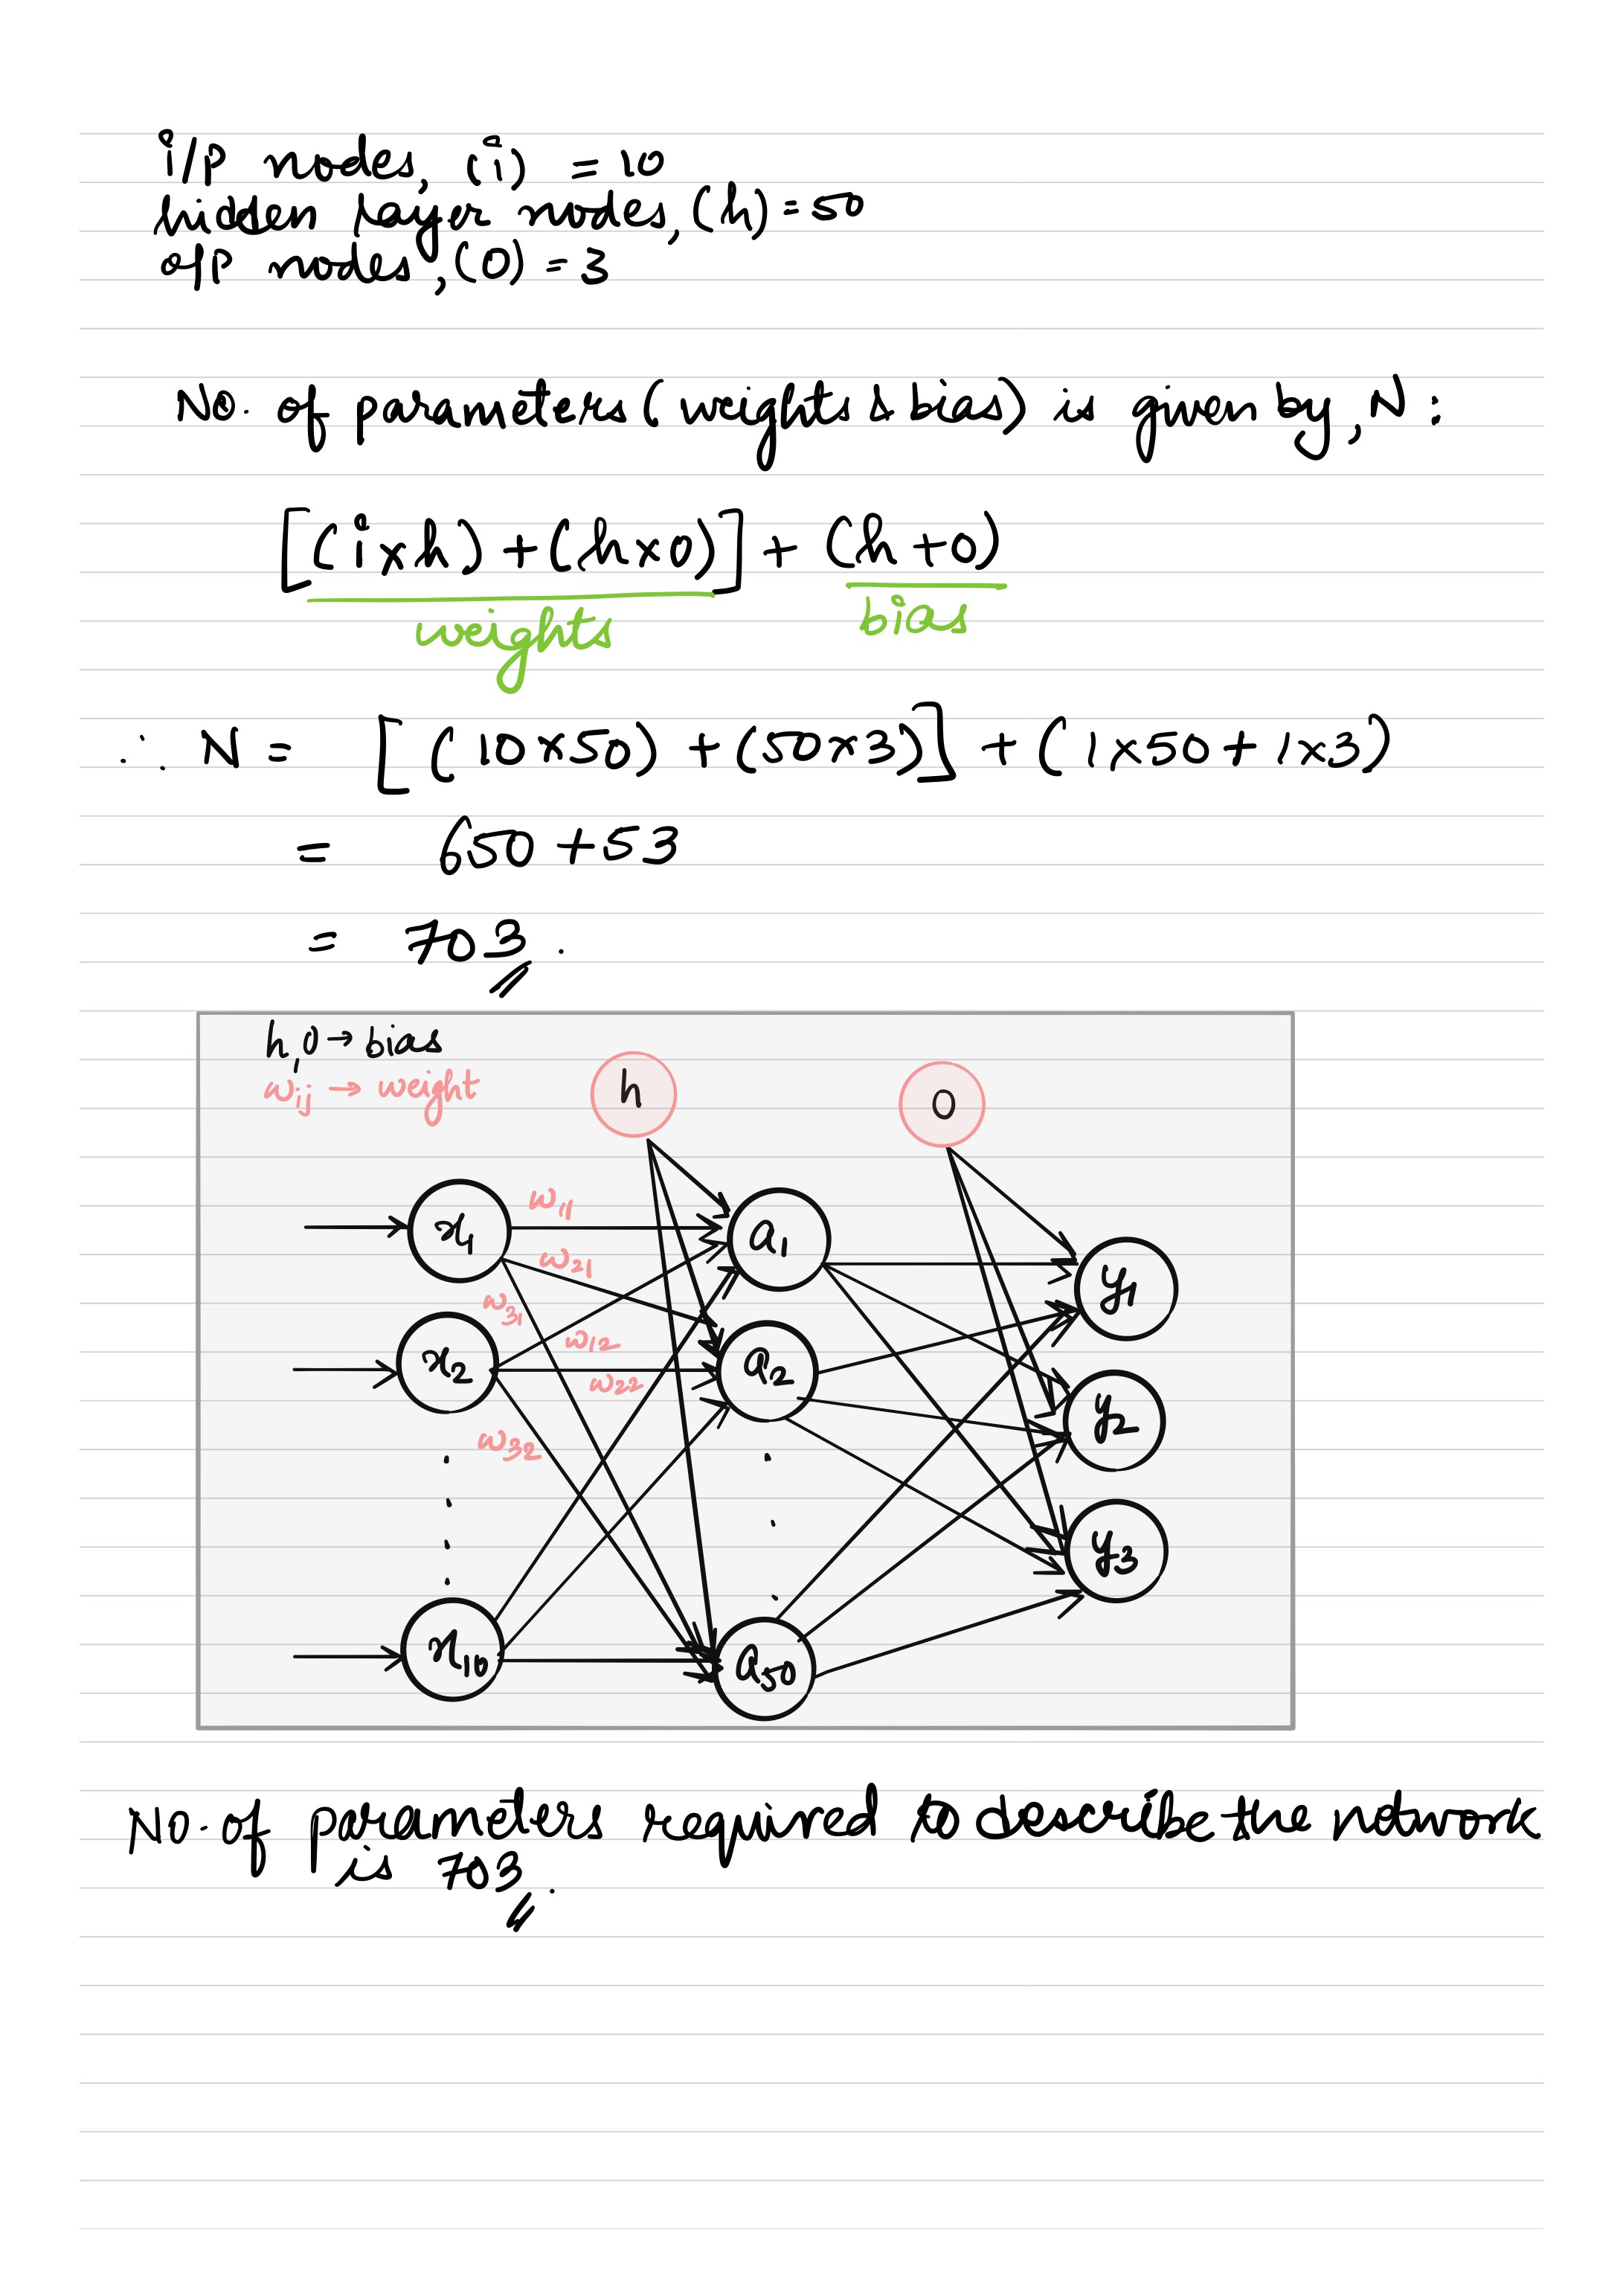 i/p nodes, (i) = 10
hidden layer nodes, (h) = 50
o/p nodes, (0) = 3
No. of parameters (weights & bias) is given by, N :
[(i×h) + (h×0)] + (h+0)
weights bias
∴ N = [(10×50) + (50×3)] + (1×50 + 1×3)
= 650 + 53
= 703.
h,0 → bias
wij → weight
h 0
x1 w11 a1
w21
y1
w31
x2 w12 a2
w22
y2
w32
y3
x10 a50
No. of parameters required to describe the network
is 703.